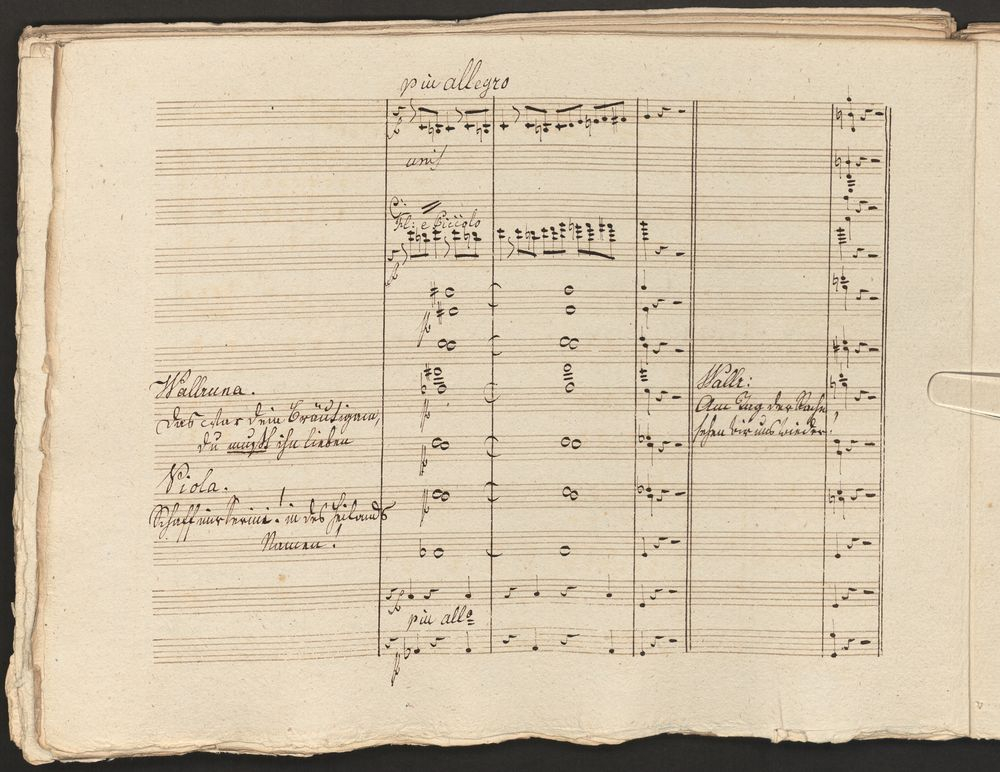 piu allegro
unis
Fl: e Piccolo
Wallenna.
Das war dein Bräutigam,
du mußt ihn lieben
Viola.
Schaff mir Serini! in des Heilands
Namen!
Walle:
Am Tag der Rache
sehen wir uns wieder!
piu allo